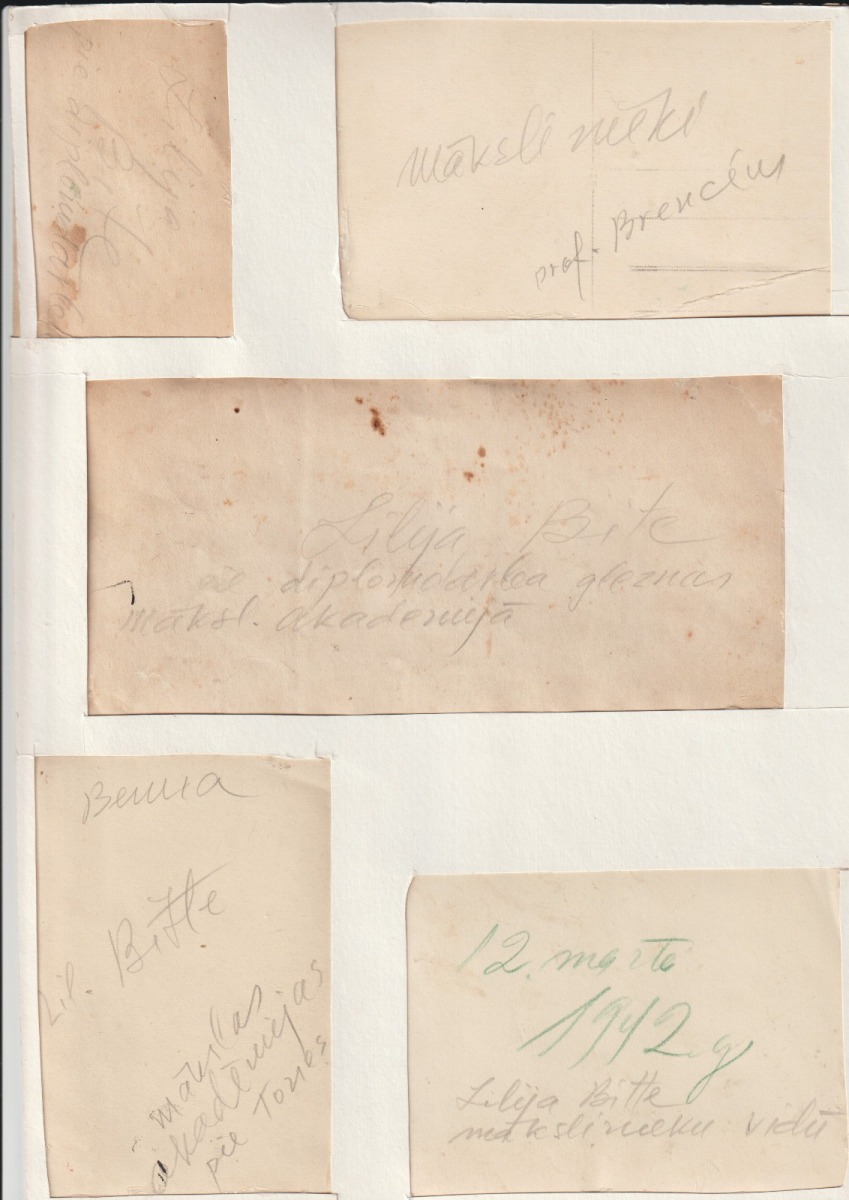 Lilija
Bite
pie diplomdarba
mākslinieki
prof. Brencēns
Lilija Bite
pie diplomdarba gleznas
māksl. akademijā
Lil. Bitte
mākslas
akadēmijas
pie
12. martā
1942 g.
Lilija Bitte
mākslinieku vidū